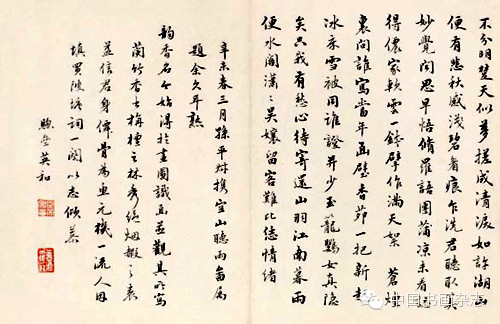 不分明楚天似夢搓成清淚如許湖山
便有愁秋感淺碧痕乍洗君聽取
妙覺閒思早悟脩羅語團蒲凉未有想
得儂家軟雪一擘作滿天絮 蒼
裏問誰寫當年畫壁香茆一把新起
冰床雪被同誰證并少玉籠鸚女真隱
矣只我有愁心待寄還山羽江南暮雨
便水閣瀟〻吳孃留客難比倦情緒
辛未春三月孫平叔攜空山聽雨圖屬
題余久耳熟
韵香名今始得於畫圖識面並觀其所寫
蘭竹香士梅之林秀絕烟之表
益信君身骨為魚元機一流人因
填買陂塘詞一闋以志傾慕
煦齋英和
中国书画杂志